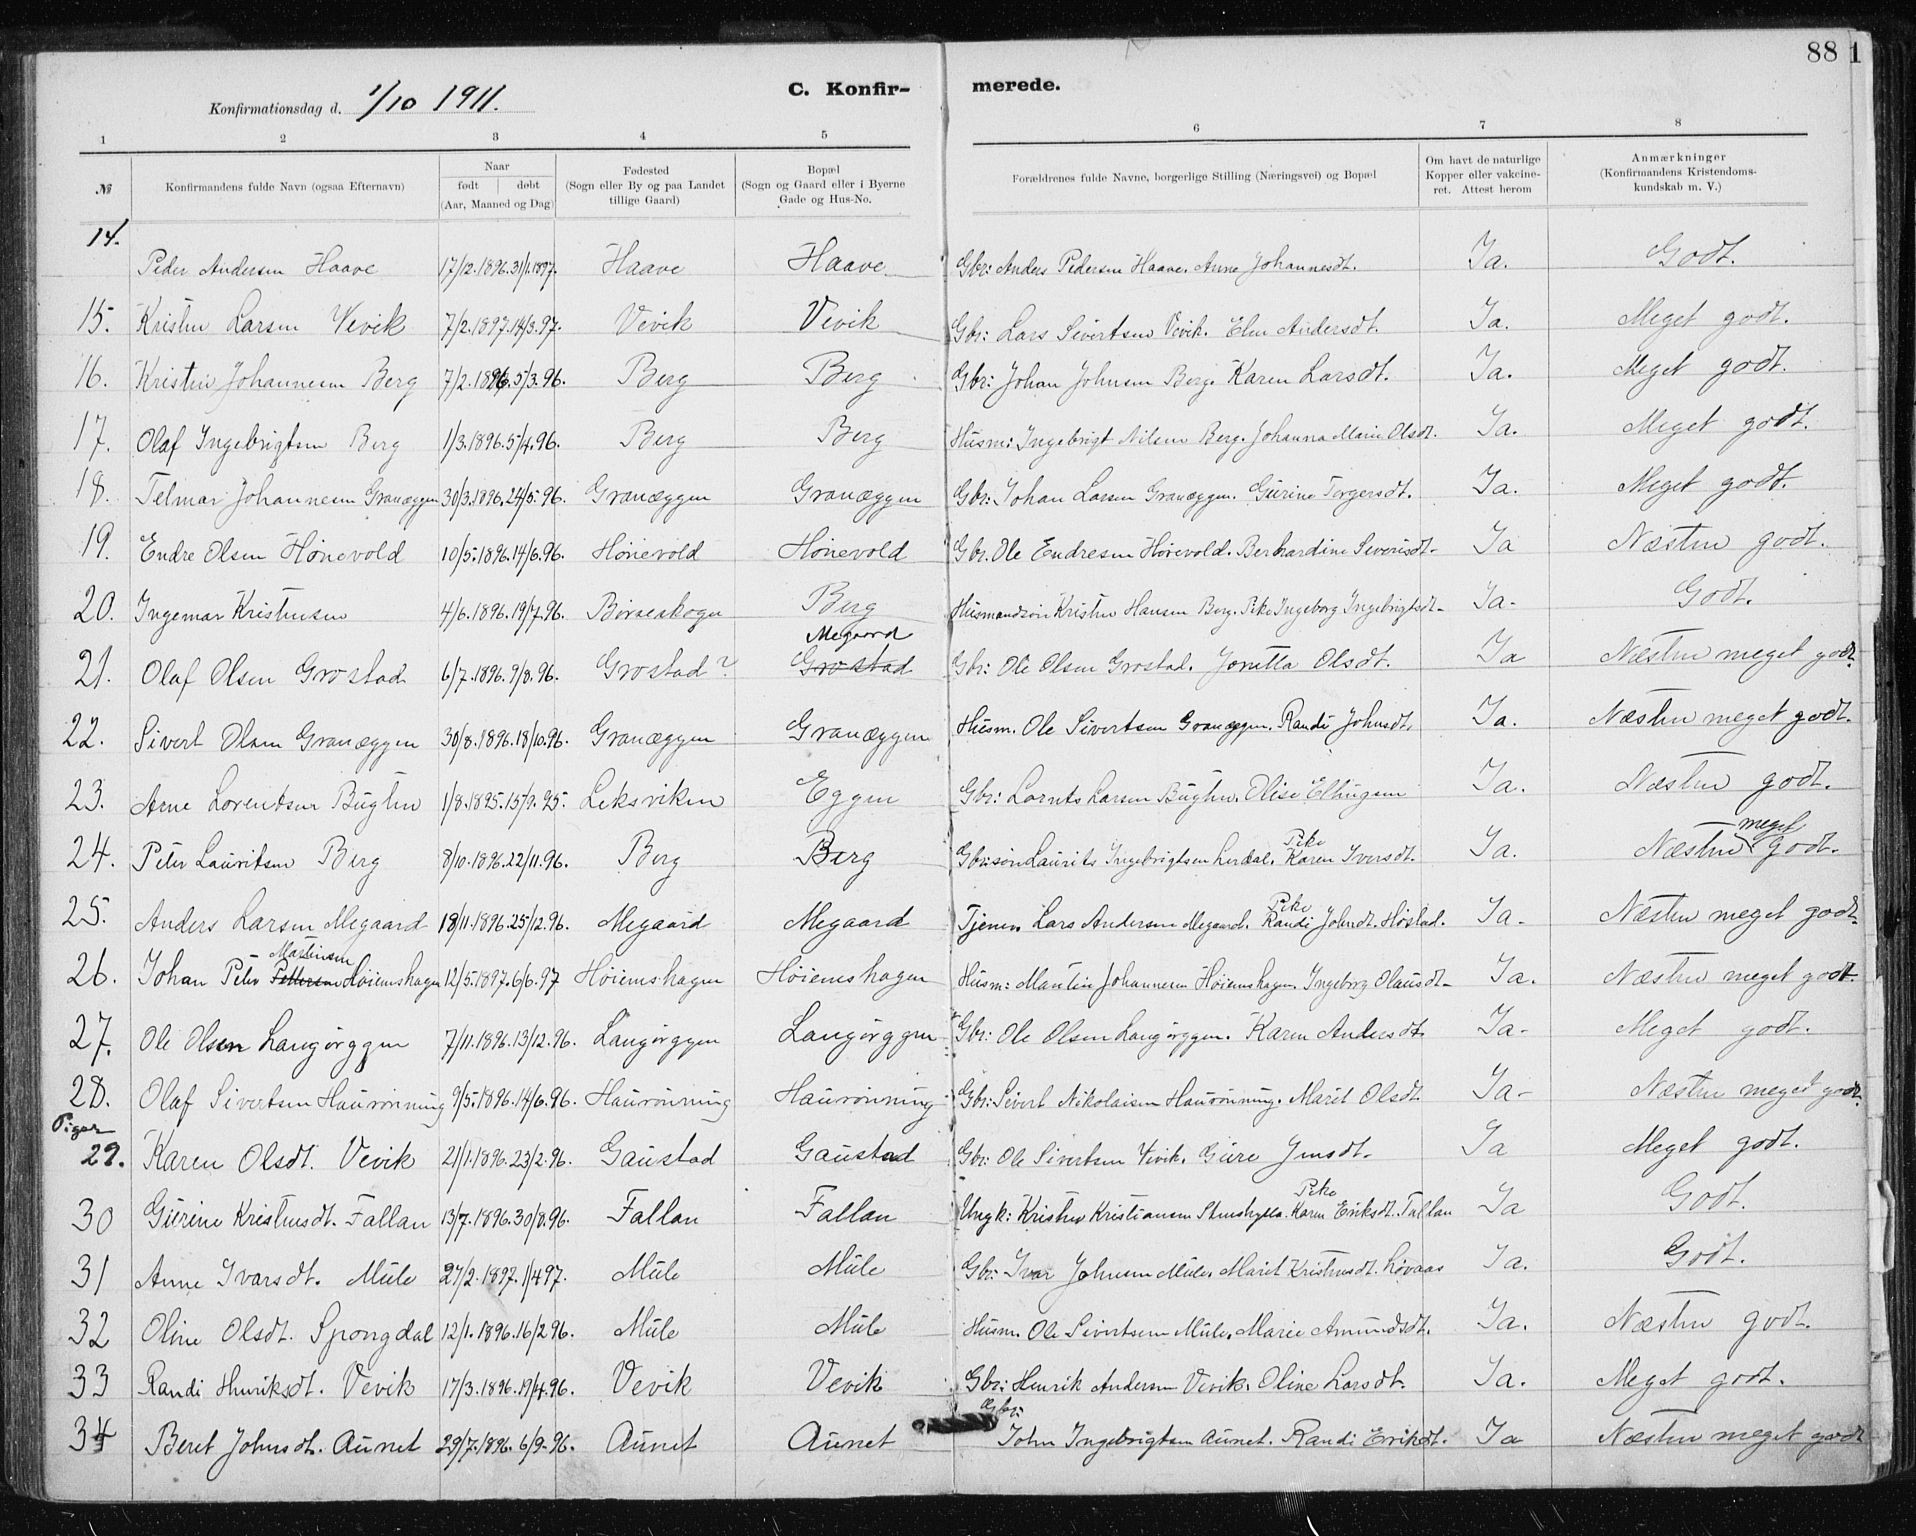 88 1
Konfirmationsdag d. 1/10 1911. C. Konfir- merede.
1 2 3 4 5 6 7 8
№ Konfirmandens fulde Navn (ogsaa Efternavn) Naar født døbt (Aar, Maaned og Dag) Fødested (Sogn eller By og paa Landet tillige Gaard) Bopæl (Sogn og Gaard eller i Byerne Gade og Hus-No. Forældrenes fulde Navne, borgerlige Stilling (Næringsvei) og Bopæl Om havt de naturlige Kopper eller vakcine- ret. Attest herom Anmærkninger (Konfirmandens Kristendoms- kundskab m. V.)
14. Peder Andersen Haave 17/12.1896. 31/1.1897. Haave Haave Gbr: Anders Pedersen Haave. Anne Johannesdt. Ja. Godt.
15. Kristen Larsen Vevik 7/2.1897. 14/3.97. Vevik Vevik Gbr: Lars Sivertsen Vevik. Elen Andersdt. Ja. Meget godt.
16. Kristen Johannesen Berg 7/2.1896. 5/3.96. Berg Berg Gbr: Johan Johnsen Berg. Karen Larsdt. Ja. Meget godt.
17. Olaf Ingebrigtsen Berg 1/3.1896. 5/4.96. Berg Berg Husm: Ingebrigt Nilsen Berg. Johanna Marie Olsdt. Ja. Meget godt.
18. Telmar Johannesen Granæggen 30/3.1896. 24/5.96. Granæggen Granæggen Gbr: Johan Larsen Granæggen. Gurine Torgersdt. Ja. Meget godt.
19. Endre Olsen Hønevold 10/5.1896. 14/6.96. Hønevold Hønevold Gbr. Ole Endresen Hønevold. Berhardine Siverisdt. Ja Næsten godt.
20. Ingemar Kristensen 4/6.1896. 19/7.96. Børseskogn Berg Husmandsøn Kristen Hansen Berg. Pike Ingeborg Ingebrigtsdt. Ja- Godt.
Megaard
21. Olaf Olsen Grostad 6/7.1896. 9/8.96. Grostad? Grostad Gbr: Ole Olsen Grostad. Jonetta Olsdt. Ja Næsten meget godt.
22. Sivert Olsen Granæggen 30/8.1896. 18/10.96. Granæggen Granæggen Husm. Ole Sivertsen Granæggen. Randi Johnsdt. Ja. Næsten meget godt.
23. Arne Lorentsen Bugten 1/8.1895. 15/9.95. Leksviken Eggen Gbr: Lornts Larsen Bugten. Olise Ellingsen Ja. Næsten godt.
Pike meget
24. Peter Lauritsen Berg 8/10.1896. 22/11.96. Berg Berg Gbr:søn Laurits Ingebrigtsen Lerdal. Karen Iversdt. Ja. Næsten godt.
Pike
25. Anders Larsen Megaard 18/11.1896. 25/12.96. Megaard Megaard Tjener. Lars Andersen Megaard. Randi Johnsdt. Høstad. Ja- Næsten meget godt.
Martinsen
26. Johan Peter Pettersen Høiemshagen 12/5.1897. 6/6.97 Høiemshagen Høiemshagen Husm: Martin Johannesen Høiemshagen. Ingeborg Olausdt. Ja. Næsten meget godt.
27. Ole Olsen Langørggen 7/11.1896. 13/12.96. Langørggen Langørggen Gbr: Ole Olsen Langørggen. Karen Andersdt. Ja- Meget godt.
28. Olaf Sivertsen Haurønning 9/5.1896. 14/6.96. Haurønning Haurønning Gbr: Sivert Nikolaisen Haurønning. Marit Olsdt. Ja- Næsten meget godt.
Piger
29. Karen Olsdt. Vevik 21/1.1896. 23/2.96. Gaustad Gaustad Gbr: Ole Sivertsen Vevik. Gure Jensdt. Ja Meget godt.
Pike
30 Gurine Kristensdt. Fallan 13/7.1896. 30/8.96. Fallan Fallan Ungk: Kristen Kristiansen Stenshylla. Karen Eriksdt. Fallan Ja Godt.
31 Anne Ivarsdt. Mule 27/2.1897. 1/4 97. Mule Mule Gbr: Ivar Johnsen Mule. Marit Kristensdt. Løvaas Ja. Godt.
32 Oline Olsdt. Spongdal 12/1.1896. 16/2.96. Mule Mule Husm. Ole Sivertsen Mule. Marie Amundsdt. Ja. Næsten godt.
33 Randi Henriksdt. Vevik 17/3.1896. 19/4.96. Vevik Vevik Gbr: Henrik Andersen Vevik. Oline Larsdt. Ja. Meget godt.
Gbr:
34 Beret Johnsdt. Aunet 29/7.1896. 6/9.96. Aunet Aunet John Ingebrigtsen Aunet. Randi Eriksdt. Ja Næsten meget godt